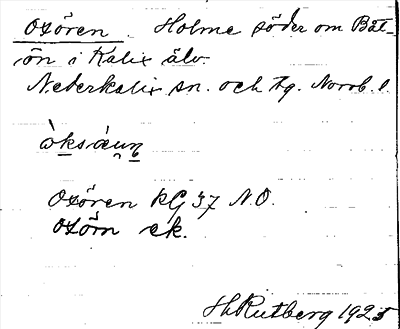 Oxören. Holme söder om Båt-
ön i Kalix älv.
Nederkalix sn. och tg. Norrb. l.
Oxören kG 37 N.O.
Oxörn ek.
H Rutberg 1925